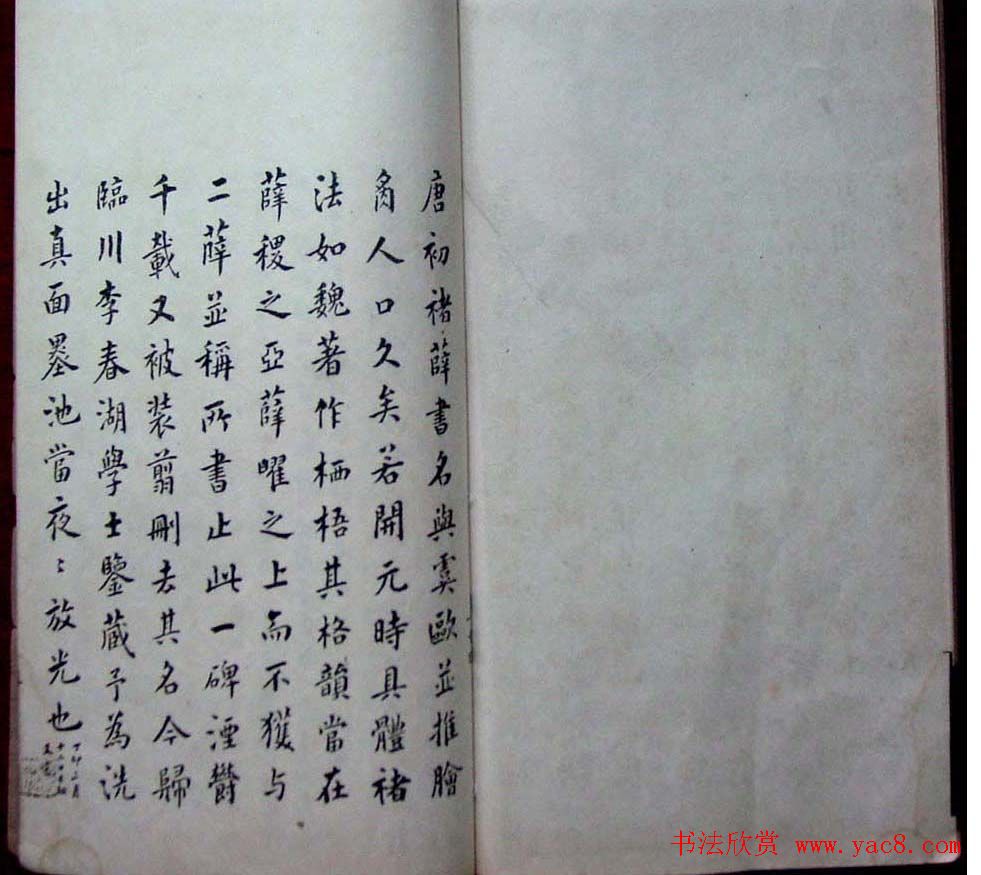 唐初褚薛書名與虞歐並推膾
人口久矣若開元時具體褚
法如魏著作栖梧其格韻當在
薛稷之亞薛曜之上而不獲与
二薛並稱所書止此一碑湮欝
千載又被装翦刪去其名今歸
臨川李春湖學士鑒藏予為洗
出真面墨池當夜〻放光也
丁卯三月
书法欣赏 www.yac8.com